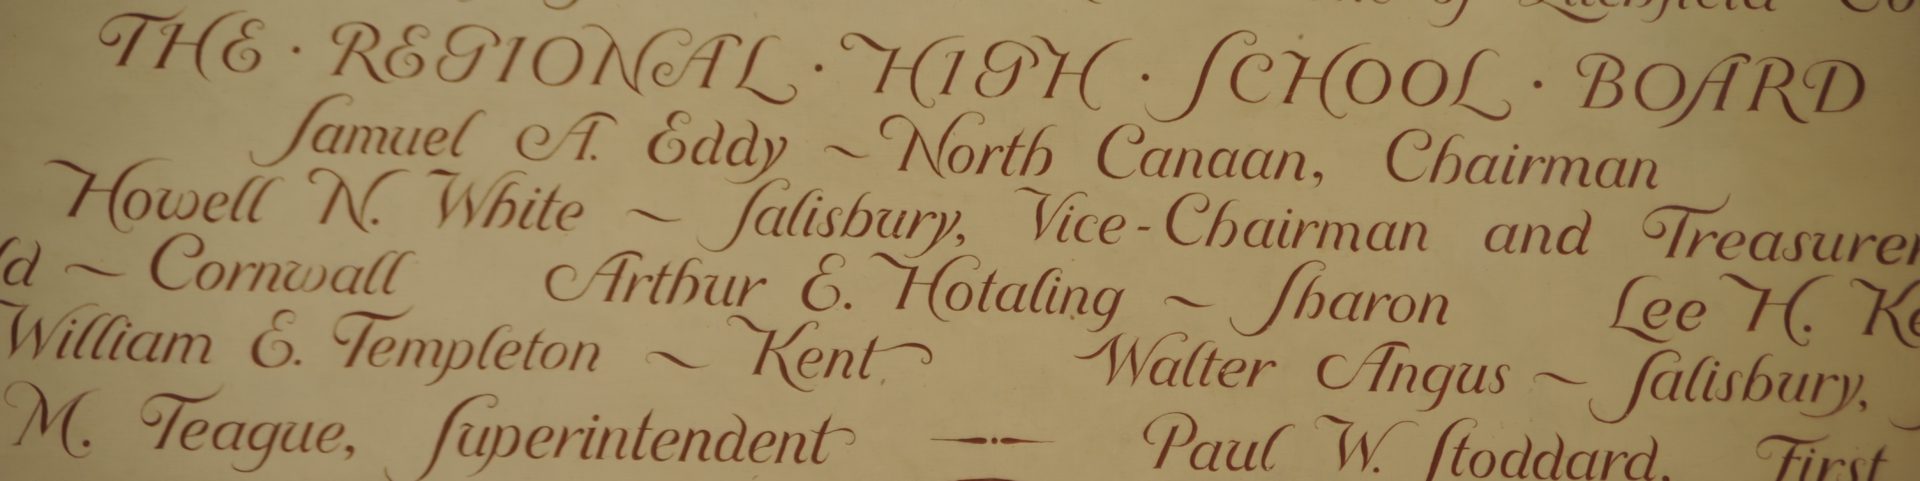 of Litchfield
THE · REGIONAL · HIGH · SCHOOL · BOARD
Samuel A. Eddy ~ North Canaan, Chairman
Howell N. White ~ Salisbury, Vice-Chairman and Treasurer
d ~ Cornwall Arthur E. Hotaling ~ Sharon Lee H.
William E. Templeton ~ Kent Walter Angus ~ Salisbury,
M. Teague, Superintendent Paul W. Stoddard, First